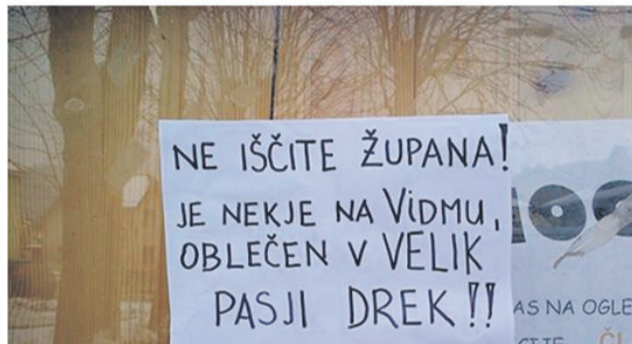 NE IŠČITE ŽUPANA!
JE NEKJE NA VIDMU,
OBLEČEN V VELIK
PASJI DREK!!
AS NA OGLE